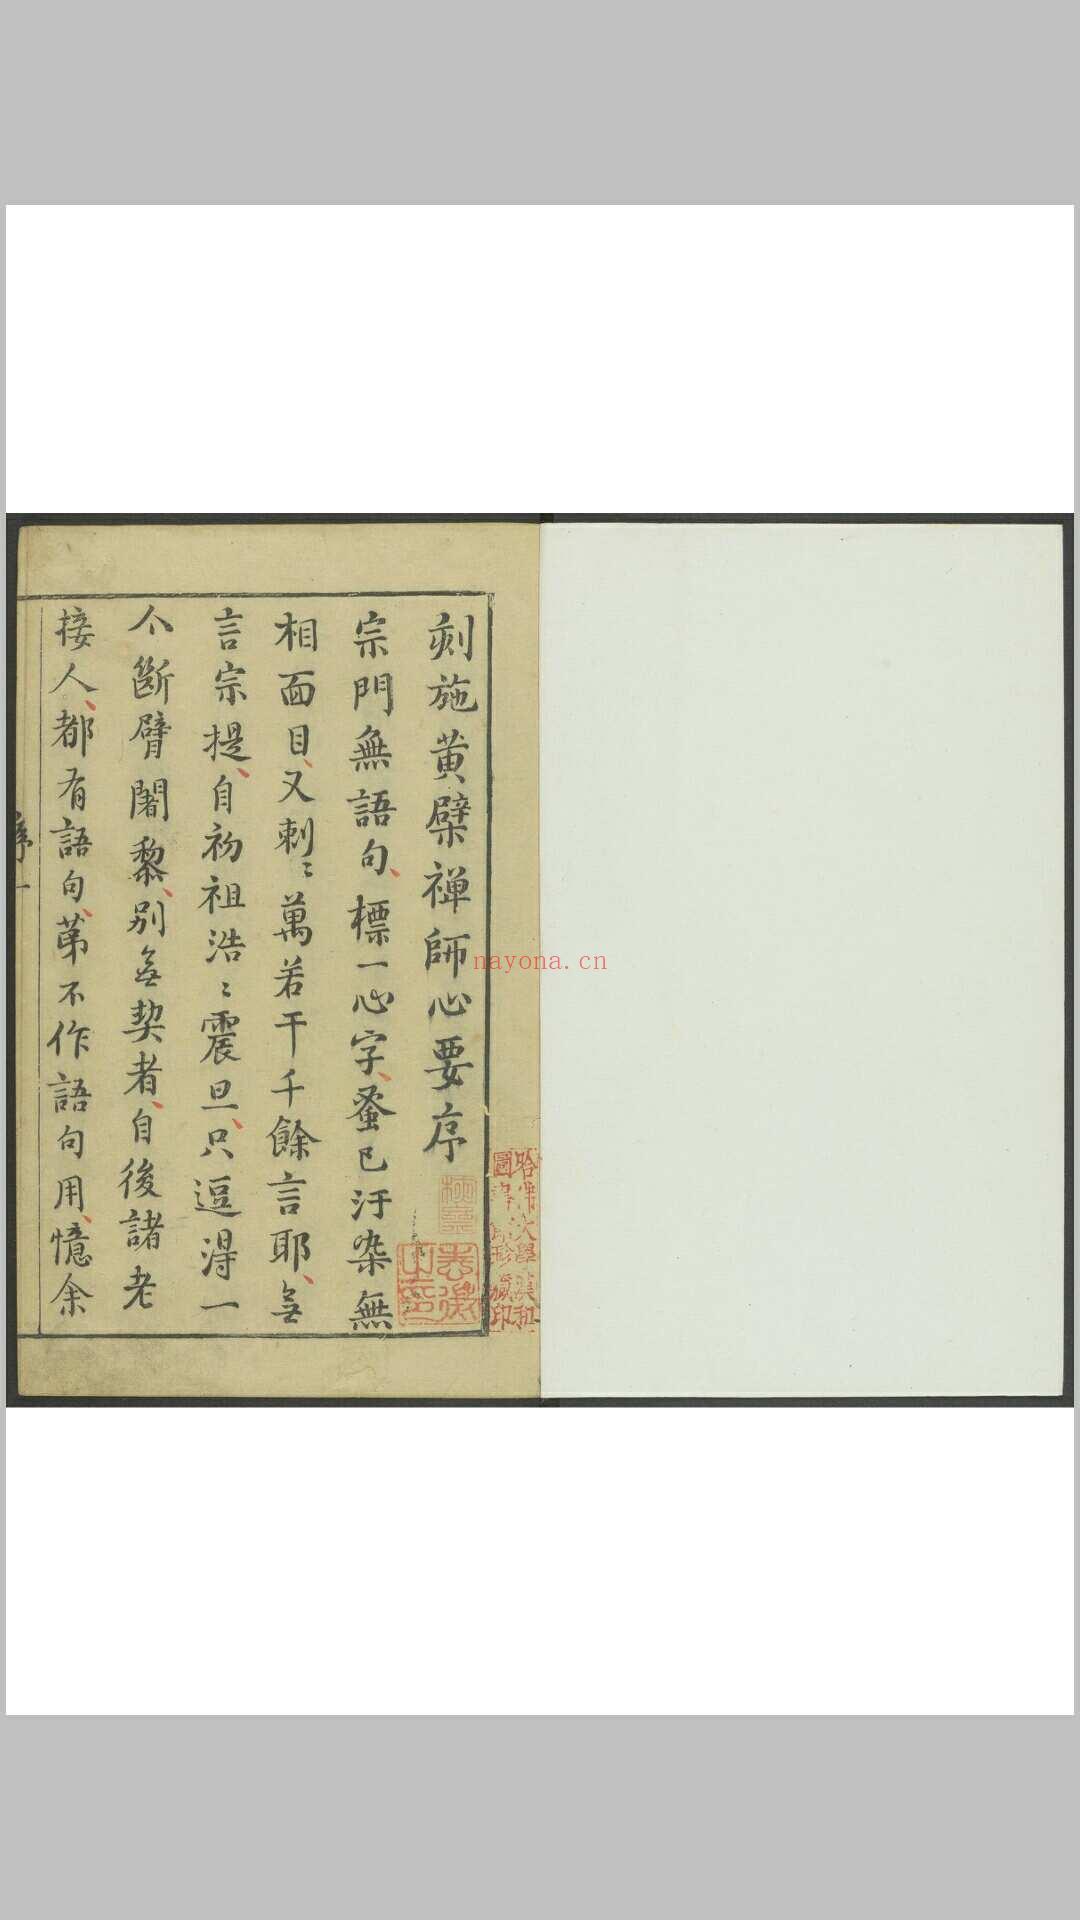 刻施黄檗禅師心要序
宗門無語句標一心字蚤已汙染無
相面目又刺〻萬若干千餘言耶無
言宗提自初祖浩〻震旦只逗得一
个斷臂闍黎別無契者自後諸老
接人都有語句第不作語句用憶余
序一
哈佛大學漢和
圖書館珍藏印
nayona.cn